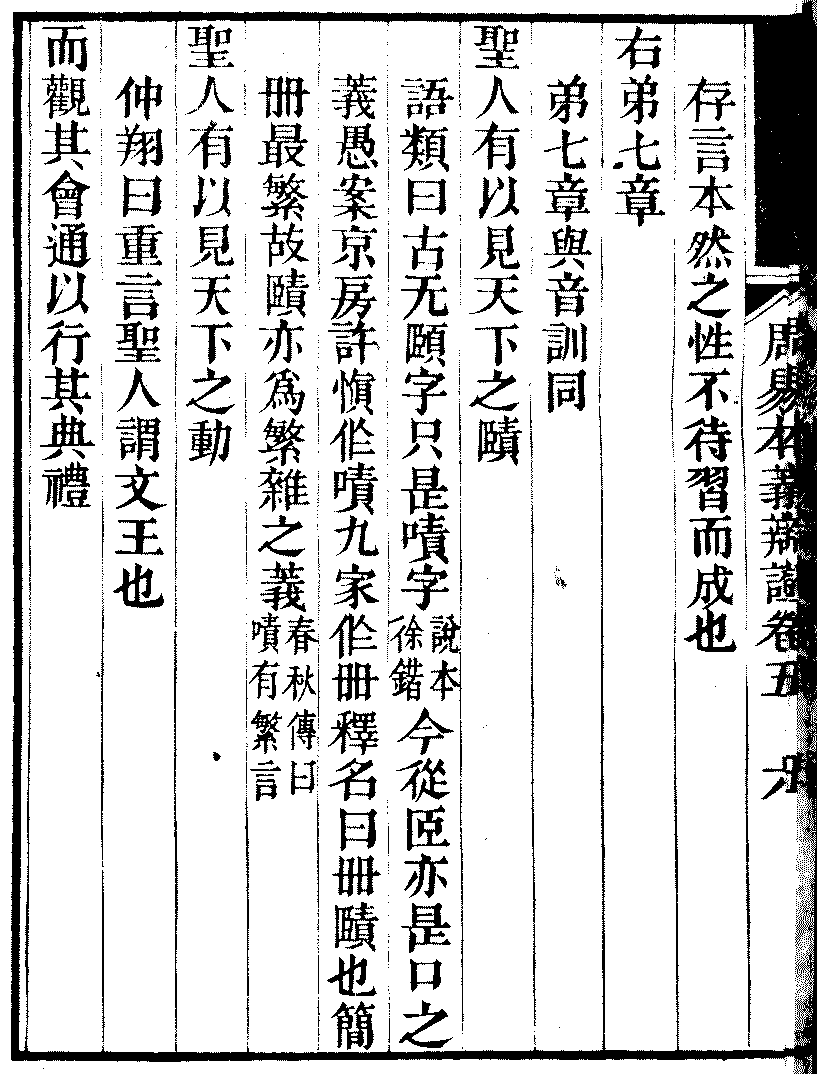 周易本義辨證卷五 六
存言本然之性不待習而成也
右弟七章
弟七章與音訓同
聖人有以見天下之賾
語類曰古无賾字只是嘖字說本徐鍇今從𦣞亦是口之
義愚案京房許愼作嘖九家作冊釋名曰冊賾也簡
冊最繁故賾亦爲繁雜之義春秋傳曰嘖有繁言
聖人有以見天下之動
仲翔曰重言聖人謂文王也
而觀其會通以行其典禮